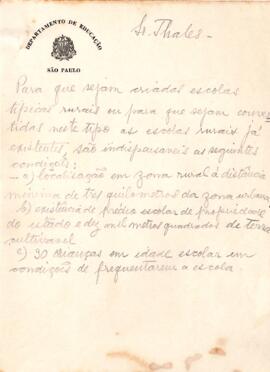 Sr. Thales -
DEPARTAMENTO DE EDUCAÇÃO
SÃO PAULO
Para que sejam criadas escolas
típicas rurais ou para que sejam conver-
tidas neste tipo as escolas rurais já
existentes, são indispensaveis as seguintes
condições:
- a) localização em zona rural á distancia
mínima de tres quilometros da zona urbana
b) existencia de prédio escolar de propriedade
do estado e dez mil metros quadrados de terra
cultivavel
c) 30 crianças em idade escolar em
condições de frequentarem a escola.